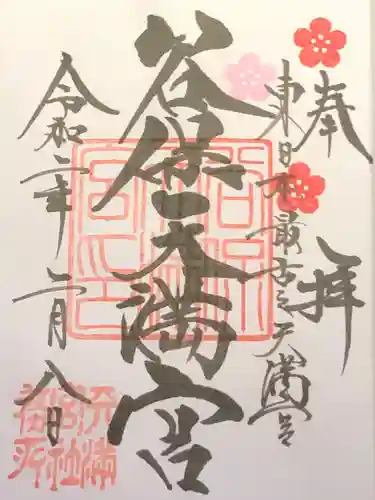 奉拝
東日本最古之天満宮
谷保天満宮
令和二年二月八日